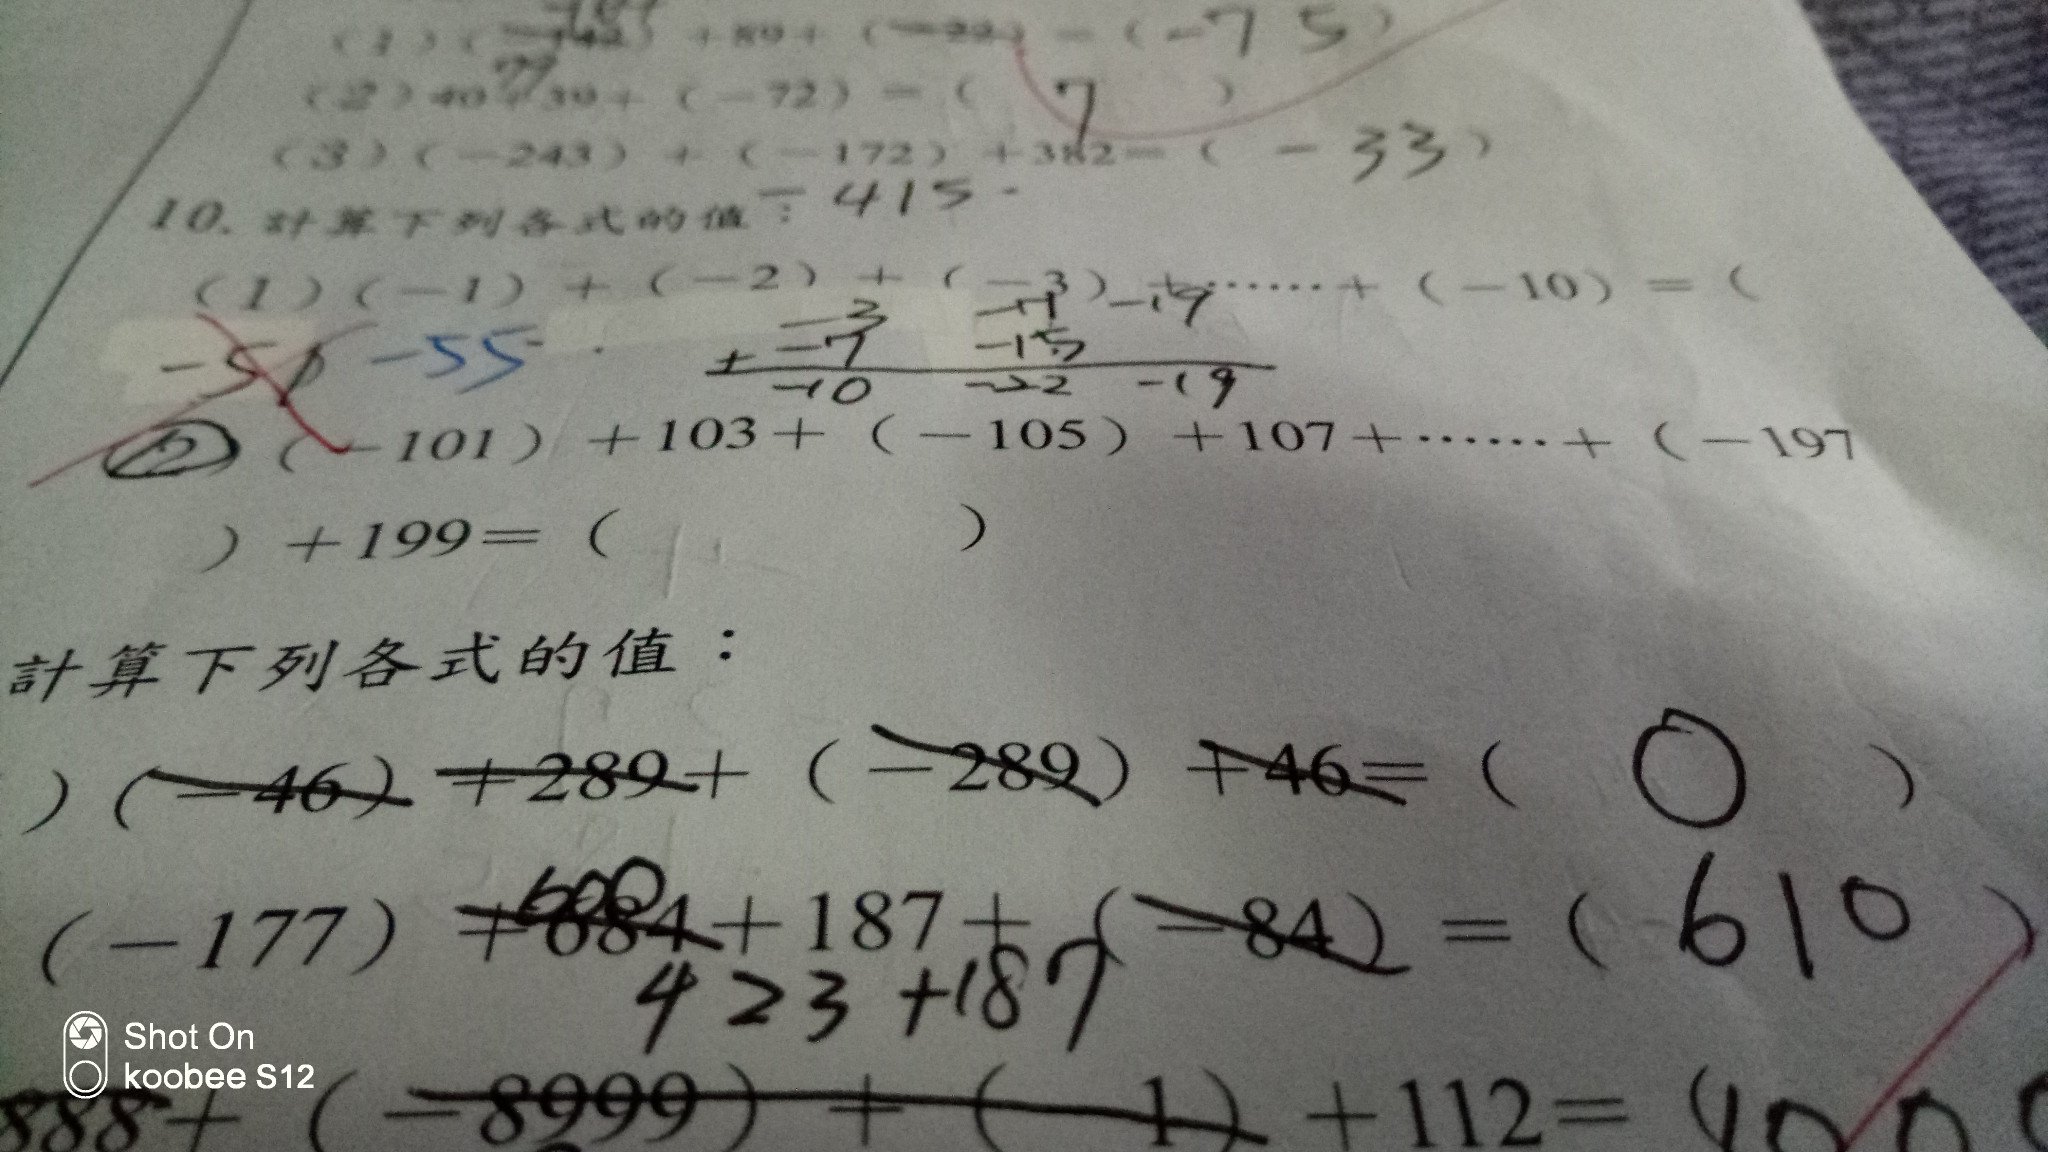 (1)(-142)+89+(-22)=(-75)
79
(2)40+39+(-72)=(7)
(3)(-243)+(-172)+382=(-33)
-415
10.計算下列各式的值：
(1)(-1)+(-2)+(-3)+……+(-10)=(
-3 -11 -19
-51 -55 + -7 -15
-10 -22 -19
(2)(-101)+103+(-105)+107+……+(-197
)+199=( )
計算下列各式的值：
)(-46)+289+(-289)+46=(0)
600
(-177)+684+187+(-84)=(610)
423+187
888+(-8999)+(-1)+112=(
Shot On
koobee S12